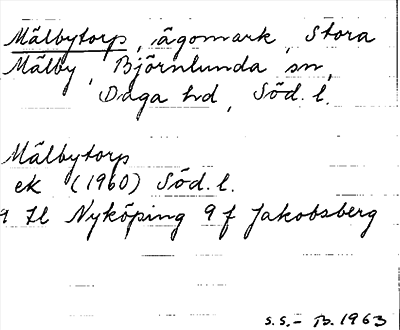 Mälbytorp, ägomark, Stora
Mälby, Björnlunda sn,
Daga hd, Söd. l.
Mälbytorp
ek (1960) Söd. l.
9 H Nyköping 9 f Jakobsberg
S.S. - B. 1963